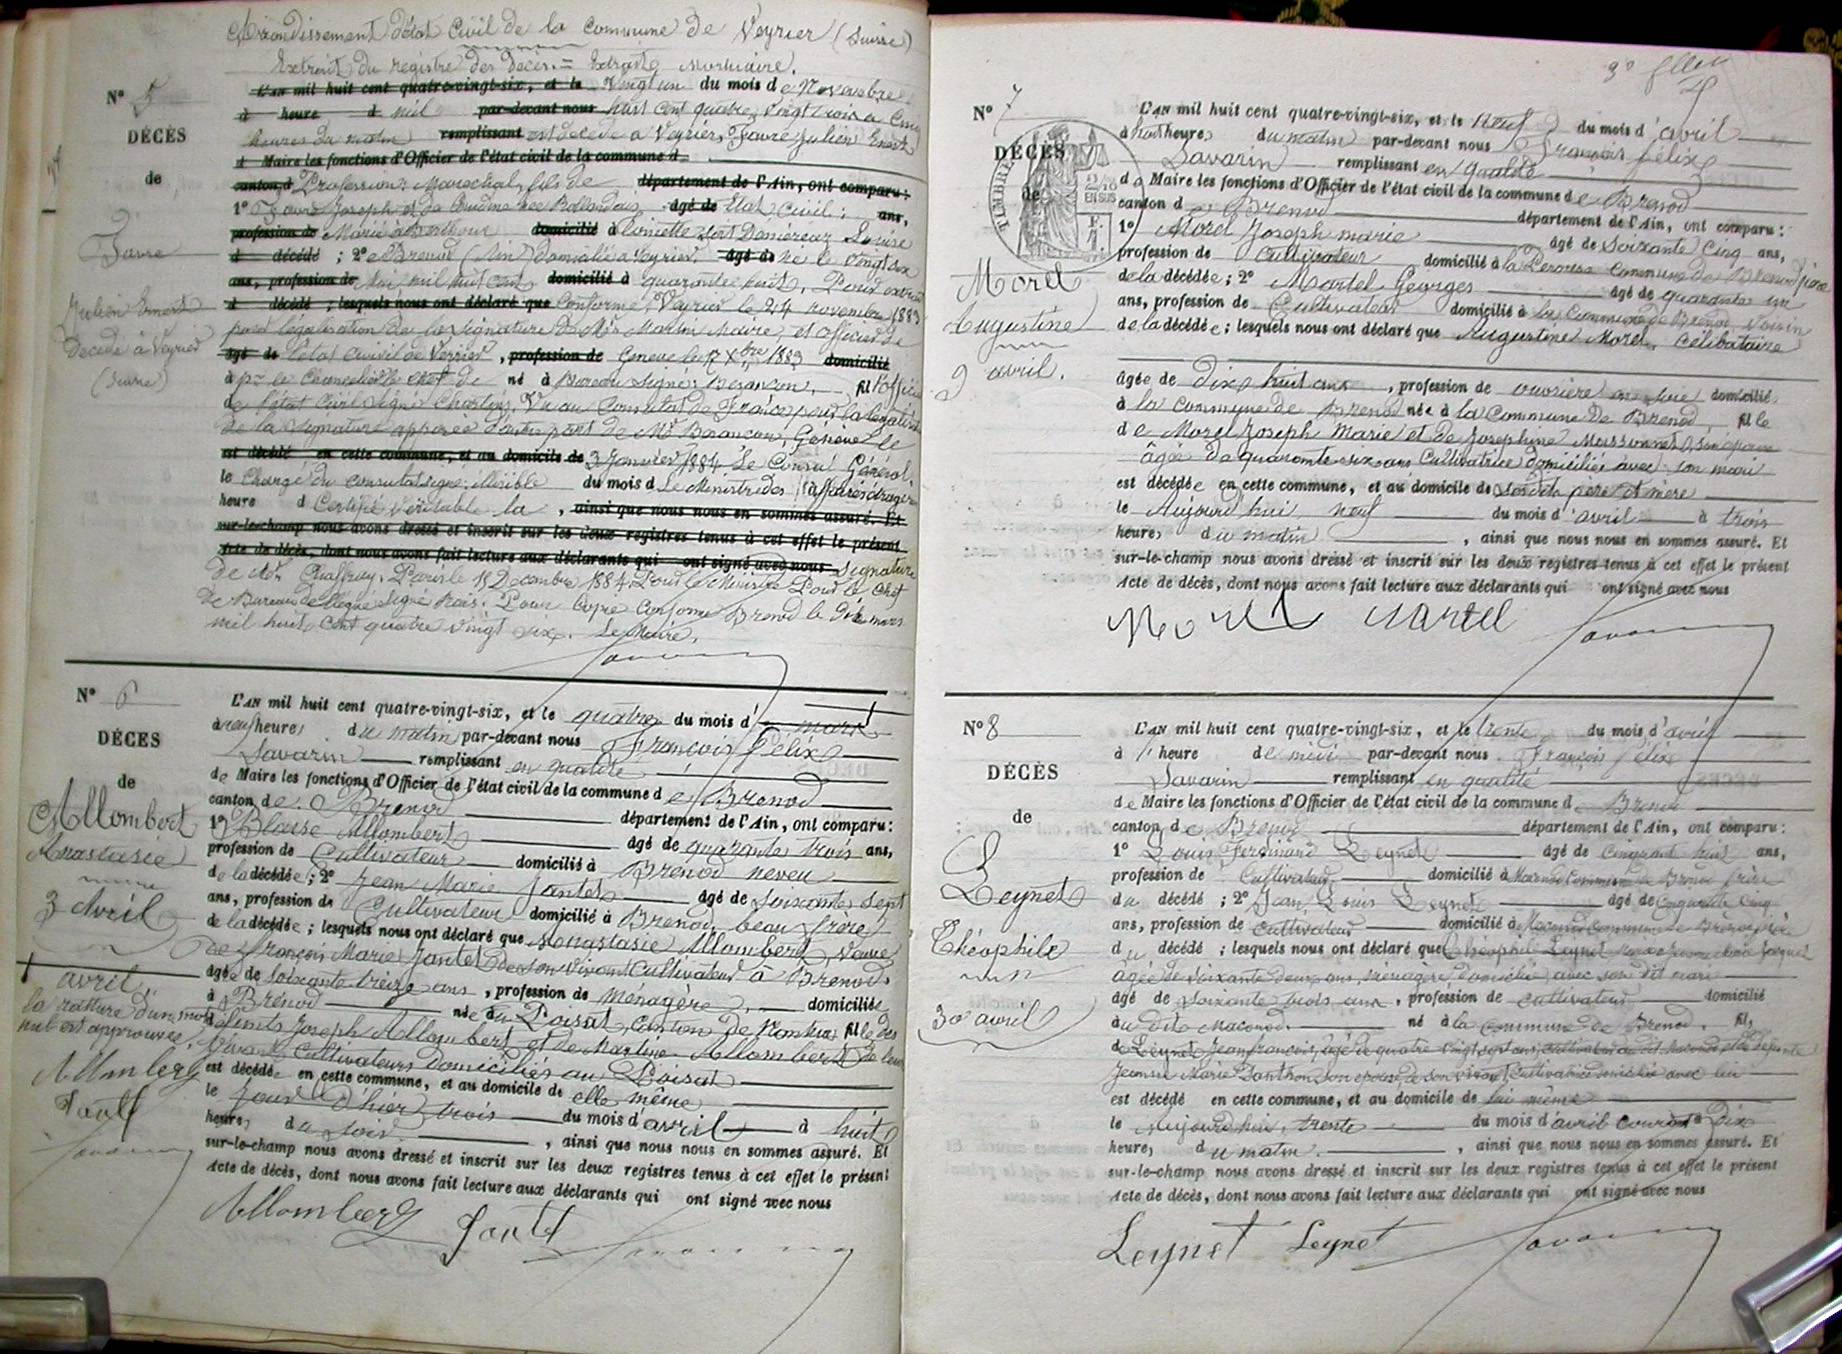 Arrondissement d'état Civil de la commune de Veyrier (Suisse)
Extrait du registre des Décès = Extrait Mortuaire.
N° 5
DÉCÈS
de
Favre
Julien Ernest
Décédé à Veyrier
(Suisse)
L'an mil huit cent quatre-vingt-six, et le Vingt un du mois de Novembre
à heure d mil par-devant nous huit cent quatre vingt trois a Cinq
heures du matin remplissant est décédé à Veyrier, Favre Julien Ernest
d Maire les fonctions d'Officier de l'état civil de la commune d
canton d Profession: Marechal, fils de département de l'Ain, ont comparu:
1° Favre Joseph et de Louise née âgé de Etat Civil: ans,
profession de Marie domicilié à Louise
d décédé ; 2° de Brenod (Ain) domicilié à Veyrier. âgé de né le Vingt six
ans, profession de Mai mil huit cent domicilié à quarante huit, Pour extrait
d décédé ; lesquels nous ont déclaré que Conforme, Veyrier le 24 novembre 1883
pour légalisation de la signature de Mr Martin Maire, et officier de
âgé de l'état civil de Veyrier, profession de Geneve le 17 Xbre 1883 domicilié
à pr le Chancelier chef de né à Bureau signé: Besançon, fil l'officier
de l'état Civil signé Vu au Consulat de France pour la légalisation
de la signature apposée d'autre part de Mr Besançon, Genève le
est décédé en cette commune, et au domicile de 3 Janvier 1884 Le Consul Général.
le Chargé du consulat signé: illisible du mois d Le Ministre des affaires étrangères
heure d Certifie Véritable la , ainsi que nous nous en sommes assuré. Et
sur-le-champ nous avons dressé et inscrit sur les deux registres tenus à cet effet le présent
Acte de décès, dont nous avons fait lecture aux déclarants qui ont signé avec nous Signature
de Mr Paris le 18 Décembre 1884 Pour le Ministre Pour le chef
de Bureau délégué signé Pour Copie Conforme Brenod le Dix mars
mil huit cent quatre vingt six. Le Maire,
Savarin
N° 6
DÉCÈS
de
Allombert
Anastasie
3 Avril
avril.
la rature d'un mot
nul est approuvée.
Allombert
Jantet
Savarin
L'an mil huit cent quatre-vingt-six, et le quatre du mois d' mars
à neuf heures du matin par-devant nous François Félix
Savarin remplissant en qualité
de Maire les fonctions d'Officier de l'état civil de la commune de Brenod
canton de Brenod département de l'Ain, ont comparu:
1° Blaise Allombert âgé de quarante trois ans,
profession de Cultivateur domicilié à Brénod neveu
de la décédée ; 2° Jean Marie Jantet âgé de soixante sept
ans, profession de Cultivateur domicilié à Brenod, beau frère
de la décédée ; lesquels nous ont déclaré que Anastasie Allombert, Veuve
de François Marie Jantet de son vivant Cultivateur à Brenod,
âgée de soixante treize ans , profession de Ménagère, domiciliée
à Brenod née au Poisat, Canton de Nantua, fille des
défunts Joseph Allombert et de Martine Allombert de leur
vivant Cultivateurs domiciliés au Poisat
est décédée en cette commune, et au domicile de elle même
le Jour d'hier trois du mois d'avril à huit
heures du soir. , ainsi que nous nous en sommes assuré. Et
sur-le-champ nous avons dressé et inscrit sur les deux registres tenus à cet effet le présent
Acte de décès, dont nous avons fait lecture aux déclarants qui ont signé avec nous
Allombert Jantet Savarin
3e fllet
N° 7
DÉCÈS
de
TIMBRE
2/10
EN SUS
Morel
Augustine
9 avril.
L'an mil huit cent quatre-vingt-six, et le Neuf du mois d'avril
à huit heures du matin par-devant nous François Félix
Savarin remplissant en qualité
de Maire les fonctions d'Officier de l'état civil de la commune de Brenod
canton de Brenod département de l'Ain, ont comparu:
1° Morel Joseph marie âgé de Soixante Cinq ans,
profession de Cultivateur domicilié à la commune de Brenod père
de la décédée ; 2° Martel Georges âgé de quarante un
ans, profession de Cultivateur domicilié à la Commune de Brenod Voisin
de la décédée ; lesquels nous ont déclaré que Augustine Morel, Célibataire
âgée de dix huit ans , profession de ouvrière en soie domiciliée
à la commune de Brenod née à la commune de Brenod, fille
de Morel Joseph Marie et de Josephine Moissonnet, son épouse
âgée de quarante six ans Cultivatrice domiciliée avec son mari
est décédée en cette commune, et au domicile de ses dits père et mère
le Aujourd'hui neuf du mois d'avril à trois
heures du matin , ainsi que nous nous en sommes assuré. Et
sur-le-champ nous avons dressé et inscrit sur les deux registres tenus à cet effet le présent
Acte de décès, dont nous avons fait lecture aux déclarants qui ont signé avec nous
Morel Martel Savarin
N° 8
DÉCÈS
de
Leynet
Théophile
30 avril
L'an mil huit cent quatre-vingt-six, et le trente du mois d'avril
à 1 heure de midi par-devant nous François Félix
Savarin remplissant en qualité
de Maire les fonctions d'Officier de l'état civil de la commune de Brenod
canton de Brenod département de l'Ain, ont comparu:
1° Louis Ferdinand Leynet âgé de Cinquante huit ans,
profession de Cultivateur domicilié à Macconod Commune de Brenod frère
du décédé ; 2° Jean Louis Leynet âgé de Cinquante Cinq
ans, profession de Cultivateur domicilié à Macconod Commune de Brenod frère
du décédé ; lesquels nous ont déclaré que Théophile Leynet
âgée de soixante deux ans, ménagère domiciliée avec son dit mari
âgé de soixante trois ans , profession de cultivateur domicilié
au dit Maconod. né à la commune de Brenod. fils
de Leynet Jean François, âgé de quatre vingt sept ans, cultivateur au dit Maconod et de défunte
Jeanne Marie Santhon son épouse de son vivant Cultivatrice domiciliée avec lui
est décédé en cette commune, et au domicile de lui même
le Aujourd'hui, trente du mois d'avril courant à Dix
heures du matin. , ainsi que nous nous en sommes assuré. Et
sur-le-champ nous avons dressé et inscrit sur les deux registres tenus à cet effet le présent
Acte de décès, dont nous avons fait lecture aux déclarants qui ont signé avec nous
Leynet Leynet Savarin